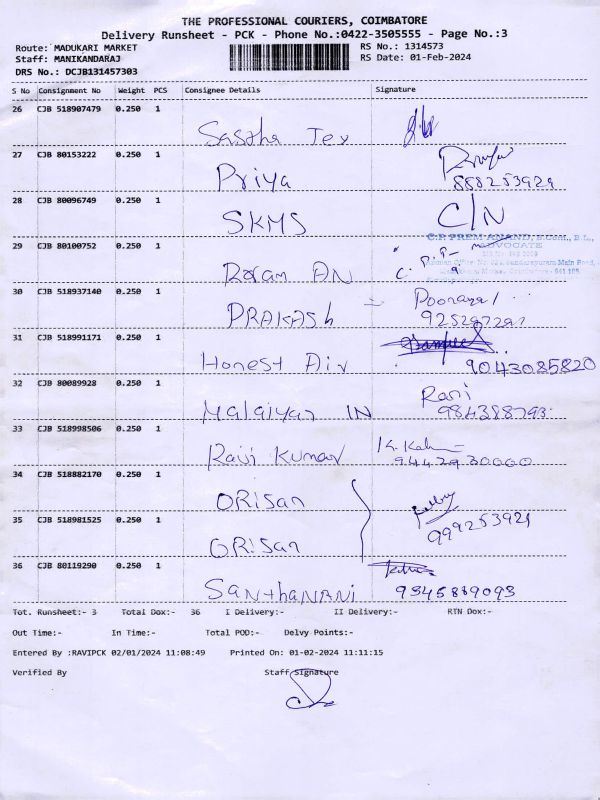 THE PROFESSIONAL COURIERS, COIMBATORE
Delivery Runsheet - PCK - Phone No.:0422-3505555 - Page No.:3
Route: MADUKARI MARKET
RS No.: 1314573
Staff: MANIKANDARAJ
RS Date: 01-Feb-2024
DRS No.: DCJB131457303
S No Consignment No Weight PCS Consignee Details Signature
26 CJB 518907479 0.250 1
Sastha Tex
27 CJB 80153222 0.250 1
Priya
888253929
28 CJB 80096749 0.250 1
SKMS C/N
C.P. PREM ANAND, B.Com., B.L.,
ADVOCATE
29 CJB 80100752 0.250 1
30 CJB 518937140 0.250 1
PRAKASh
31 CJB 518991171 0.250 1
Honest Air 9043085820
32 CJB 80089928 0.250 1
Rani
IN
33 CJB 518998506 0.250 1
Ravi Kumar
9442930000
34 CJB 518882170 0.250 1
ORisan
35 CJB 518981525 0.250 1
999253921
ORisan
36 CJB 80119290 0.250 1
SANthaNANi 9345889093
Tot. Runsheet:- 3 Total Dox:- 36 I Delivery:- II Delivery:- RTN Dox:-
Out Time:- In Time:- Total POD:- Delvy Points:-
Entered By :RAVIPCK 02/01/2024 11:08:49 Printed On: 01-02-2024 11:11:15
Verified By Staff Signature